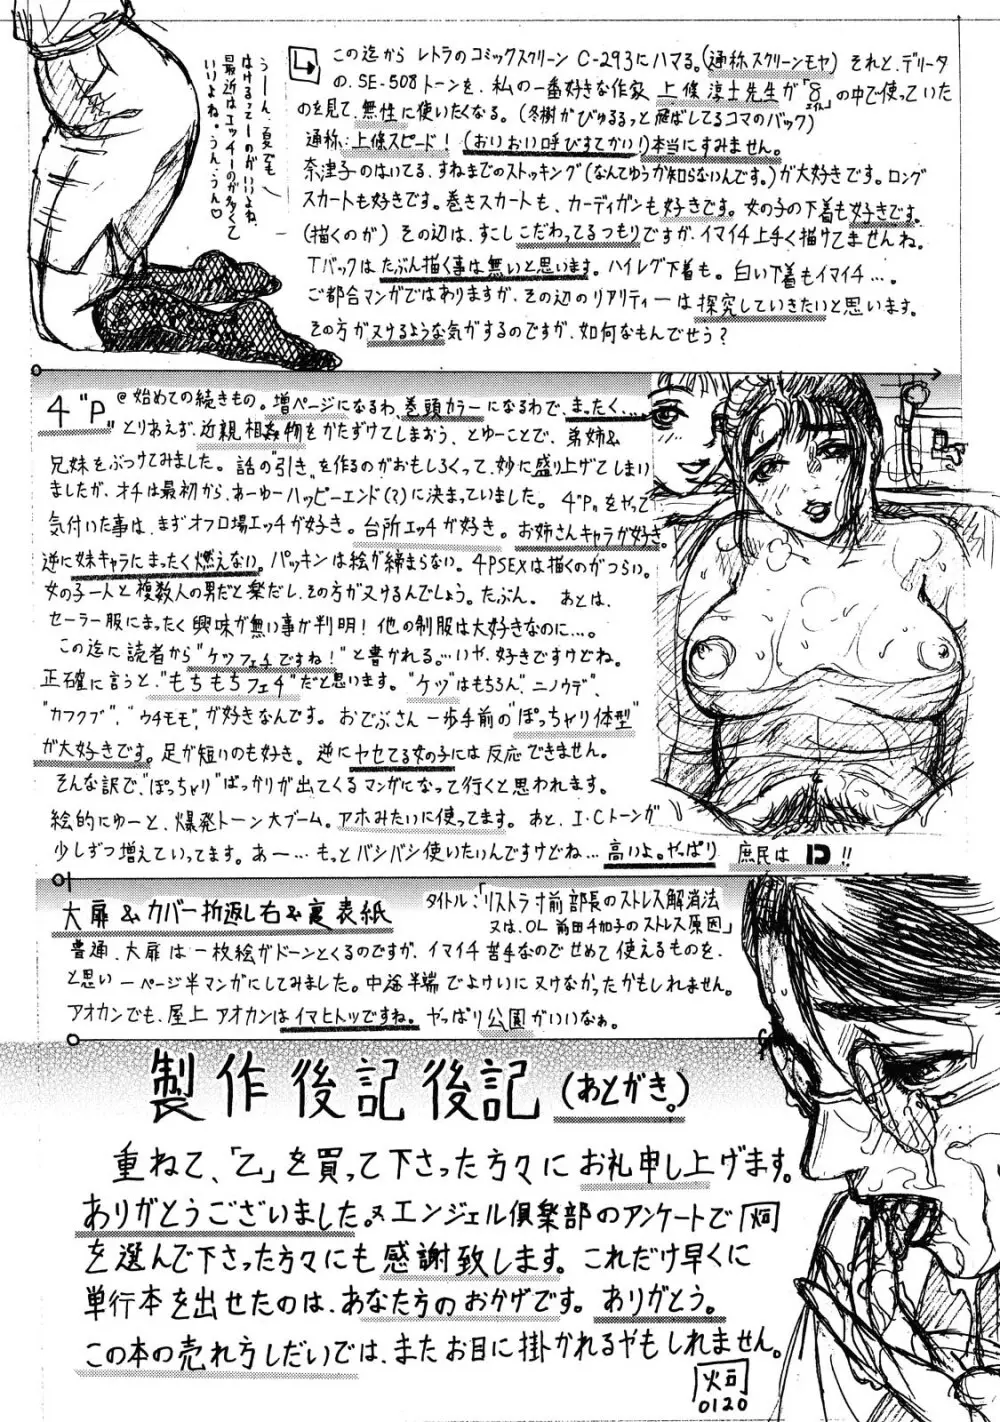 この迄から レトラのコミックスクリーン C-293にハマる。(通称スクリーンモヤ) それと、デリータ
の、SE-508トーンを、私の一番好きな作家 上條淳士先生が「8 エイト」の中で使っていた
のを見て、無性に使いたくなる。(冬樹がびゅるるっと飛ばしてるコマのバック)
通称:上條スピード! (おいおい呼びすてかい!)本当にすみません。
奈津子のはいてる、すねまでのストッキング(なんてゆうか知らないんです。)が大好きです。ロング
スカートも好きです。巻きスカートも、カーディガンも好きです。女の子の下着も好きです。
(描くのが) その辺は、すこしこだわってるつもりですが、イマイチ上手く描けてませんね。
Tバックはたぶん描く事は無いと思います。ハイレグ下着も。白い下着もイマイチ...。
ご都合マンガではありますが、その辺のリアリティーは探究していきたいと思います。
その方がヌけるような気がするのですが、如何なもんでせう?
うーん、夏でも
はけるってーのがいいよね、
最近はエッチーのが多くて
いいよね。うん、うん♡
4"P" @始めての続きもの。増ページになるわ、巻頭カラーになるわで、まったく...。
とりあえず、近親相姦物をかたずけてしまおう、とゆーことで、弟姉&
兄妹をぶつけてみました。話の"引き"を作るのがおもしろくって、妙に盛り上げてしまい
ましたが、オチは最初から、あーゆーハッピーエンド(?)に決まっていました。4"P"をやって
気付いた事は、まずオフロ場エッチが好き。台所エッチが好き。お姉さんキャラが好き。
逆に妹キャラにまったく燃えない。パッキンは絵が締まらない。4PSEXは描くのがつらい。
女の子一人と複数人の男だと楽だし、その方がヌけるんでしょう。たぶん。 あとは、
セーラー服にまったく興味が無い事が判明!他の制服は大好きなのに...。
この迄に読者から"ケツフェチですね!"と書かれる...いや、好きですけどね。
正確に言うと、"もちもちフェチ"だと思います。"ケツ"はもちろん、ニノウデ"、
"カフクブ"、"ウチモモ"、が好きなんです。おでぶさん一歩手前の"ぽっちゃり体型"
が大好きです。足が短いのも好き。逆にヤセてる女の子には反応できません。
そんな訳で、"ぽっちゃり"ばっかりが出てくるマンガになって行くと思われます。
絵的にゆーと、爆発トーン大ブーム。アホみたいに使ってます。あと、I・Cトーンが
少しずつ増えていってます。あー...もっとバシバシ使いたいんですけどね...高いよ。やっぱり 庶民は!!
大扉&カバー折返し右&裏表紙
タイトル:「リストラ寸前部長のストレス解消法
又は、OL 前田千加子のストレス原因」
普通、大扉は一枚絵がドーンとくるのですが、イマイチ苦手なのでせめて使えるものを、
と思い一ページ半マンガにしてみました。中途半端でよけいにヌけなかったかもしれません。
アオカンでも、屋上アオカンはイマヒトツですね。やっぱり公園がいいなぁ。
製作後記後記(あとがき。)
重ねて、「乙」を買って下さった方々にお礼申し上げます。
ありがとうございました。又エンジェル倶楽部のアンケートで
を選んで下さった方々にも感謝致します。これだけ早くに
単行本を出せたのは、あなた方のおかげです。ありがとう。
この本の売れ方しだいでは、またお目に掛かれるやもしれません。
0120